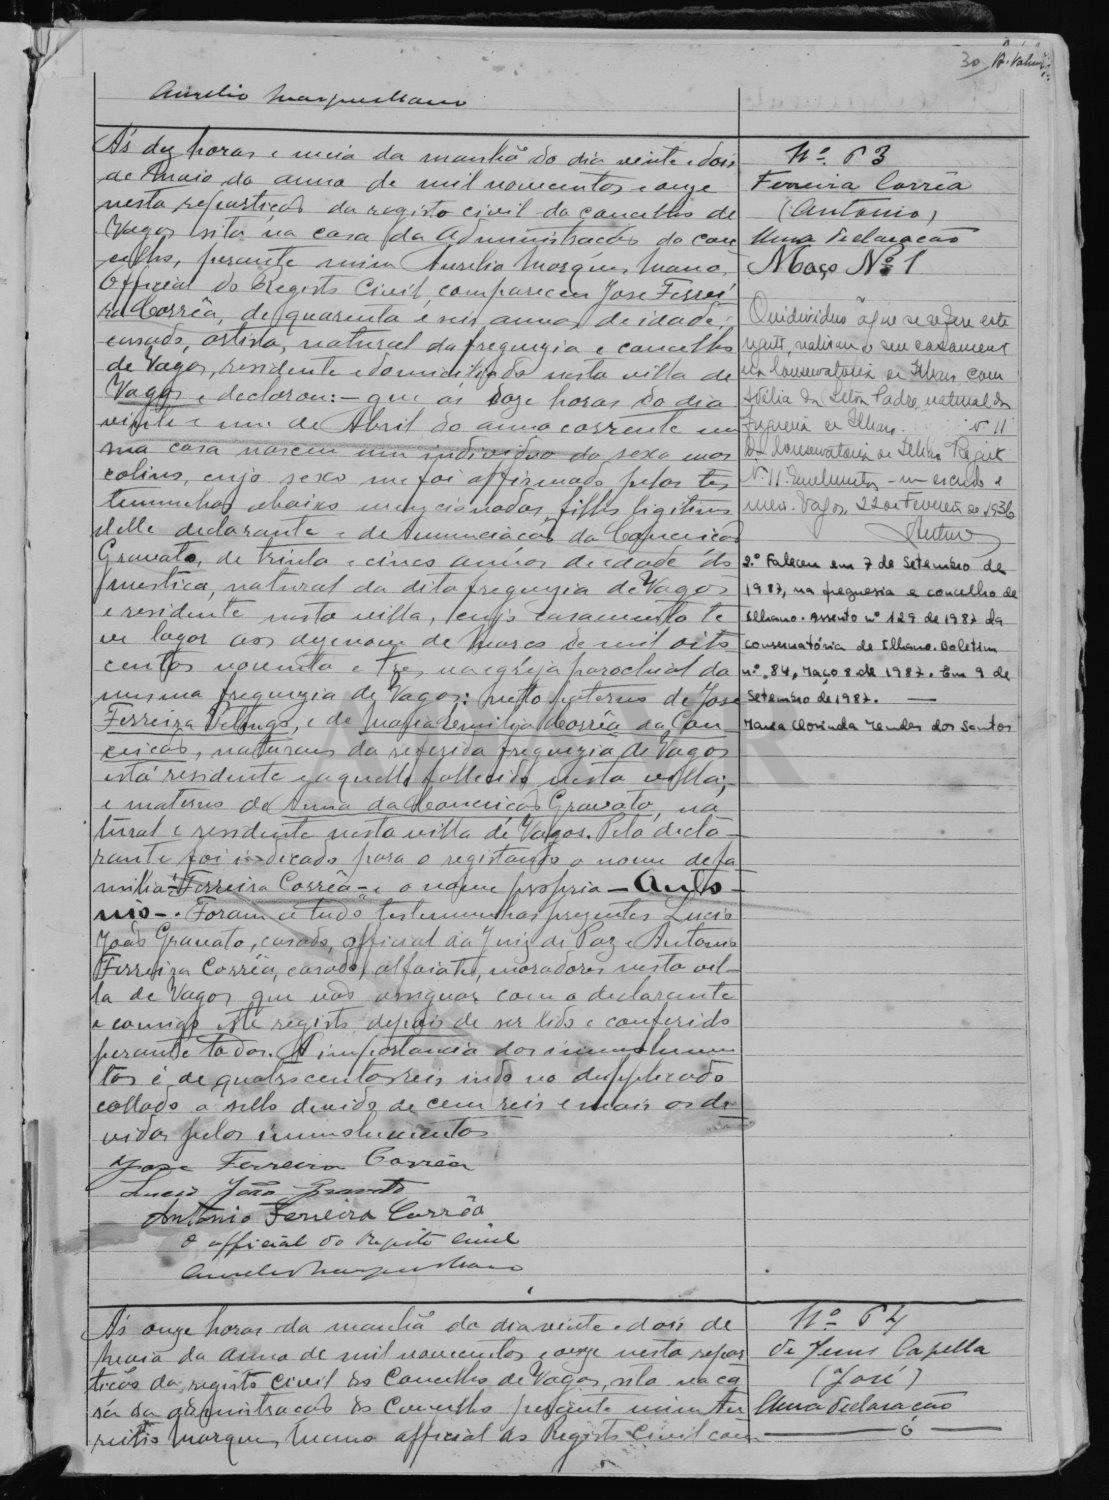 30
Aurelio Marques Mano
Ás dez horas e meia da manhã do dia vinte e dois
de Maio do anno de mil novecentos e onze
nesta repartição do registo civil do concelho de
Vagos sita na casa da Administração do con
celho, perante mim Aurelio Marques Mano,
Official do Registo Civil, compareceu José Ferrei
ra Corrêa, de quarenta e seis annos de idade,
casado, artista, natural da freguezia e concelho
de Vagos, residente e domiciliado nesta villa de
Vagos e declarou: - que as doze horas do dia
vinte e um de Abril do anno corrente em
sua casa nasceu um individuo do sexo mas
colino, cujo sexo me foi affirmado pelas tes
temunhas abaixo mencionadas, filho ligitimo
delle declarante e de Annunciação da Conceição
Gravato, de trinta e cinco annos de idade do
mestica, natural da dita freguezia de Vagos
e residente nesta villa, cujo casamento te
ve logar aos dezenove de Março de mil oito
centos noventa e tres, na egreja parochial da
mesma freguezia de Vagos: neto paterno de José
Ferreira e de Maria Emilia Corrêa da Con
ceição, naturaes da referida freguezia de Vagos
esta residente e aquelle fallecido nesta villa;
e materno de Anna da Conceição Gravato, na
tural e residente nesta villa de Vagos. Pelo decla-
rante foi indicado para o registando o nome de fa
milia - Ferreira Corrêa - e o nome proprio - Anto-
nio -. Foram a tudo testemunhas presentes Lucio
João Gravato, casado, official da Juiz de Paz e Antonio
Ferreira Corrêa, casado, alfaiate, moradores nesta vil-
la de Vagos que vão assignar com o declarante
e comigo este registo depois de ser lido e conferido
perante todos. A importancia dos emmolumen
tos é de quatrocentos reis indo no duplicado
collado o sello devido de cem reis e mais os de
vidos pelos emmolumentos
José Ferreira Corrêa
Lucio João Gravato
Antonio Ferreira Corrêa
O official do Registo Civil
Aurelio Marques Mano
Nº 63
Ferreira Corrêa
(Antonio)
Uma declaração
Maço Nº 1
O individuo a que se refere este
registo, realisou o seu casamento
na Conservatoria de Ilhavo, com
natural da
freguesia de Ilhavo. Nº 11
da Conservatoria de Ilhavo Registo
Nº 11. Emolumentos - um escudo e
meio. Vagos, 22 de Fevereiro de 1936
2.º Faleceu em 7 de Setembro de
1987, na freguesia e concelho de
Ilhavo. Assento nº 129 de 1987 da
Conservatória de Ilhavo. Boletim
nº 84, Maço 8 de 1987. Em 9 de
Setembro de 1987.
Maria Clorinda Mendes dos Santos
Ás onze horas da manhã do dia vinte e dois de
Maio do anno de mil novecentos e onze nesta repar
tição do registo civil do Concelho de Vagos, sita na ca
sa da administração do Concelho perante mim Au
relio Marques Mano official do Registo Civil com
Nº 64
de Jesus Capella
(José)
Uma declaração